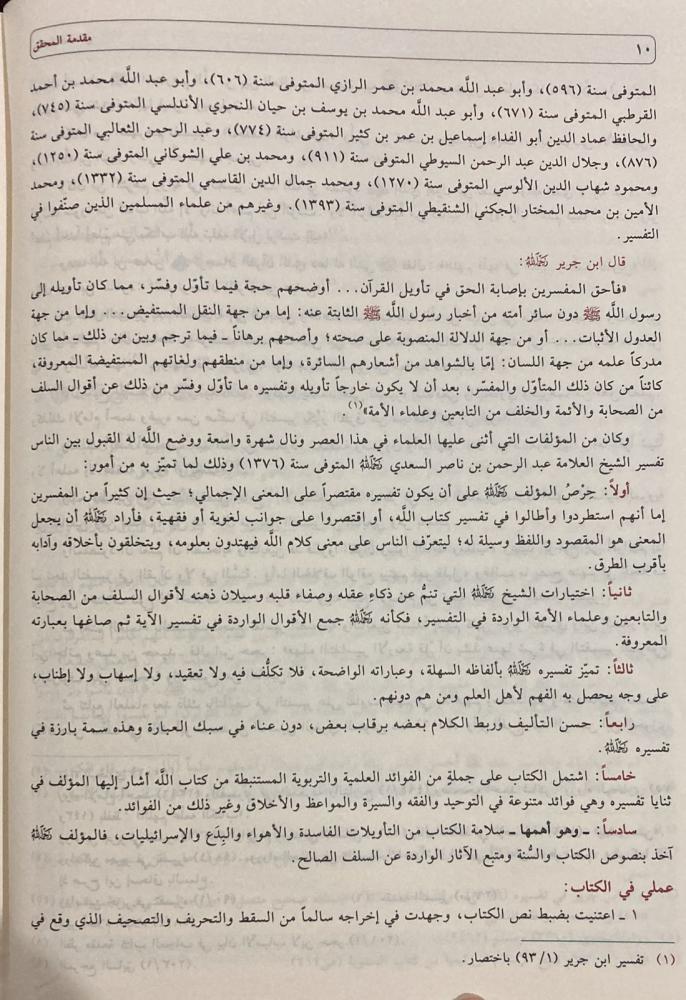 ١٠
مقدمة المحقق
المتوفى سنة (٥٩٦)، وأبو عبد اللَّه محمد بن عمر الرازي المتوفى سنة (٦٠٦)، وأبو عبد اللَّه محمد بن أحمد
القرطبي المتوفى سنة (٦٧١)، وأبو عبد اللَّه محمد بن يوسف بن حيان النحوي الأندلسي المتوفى سنة (٧٤٥)،
والحافظ عماد الدين أبو الفداء إسماعيل بن عمر بن كثير المتوفى سنة (٧٧٤)، وعبد الرحمن الثعالبي المتوفى سنة
(٨٧٦)، وجلال الدين عبد الرحمن السيوطي المتوفى سنة (٩١١)، ومحمد بن علي الشوكاني المتوفى سنة (١٢٥٠)،
ومحمود شهاب الدين الألوسي المتوفى سنة (١٢٧٠)، ومحمد جمال الدين القاسمي المتوفى سنة (١٣٣٢)، ومحمد
الأمين بن محمد المختار الجكني الشنقيطي المتوفى سنة (١٣٩٣). وغيرهم من علماء المسلمين الذين صنّفوا في
التفسير.
قال ابن جرير رَحِمَهُ اللَّهُ:
«فأحق المفسرين بإصابة الحق في تأويل القرآن... أوضحهم حجة فيما تأوّل وفسّر، مما كان تأويله إلى
رسول اللَّه ﷺ دون سائر أمته من أخبار رسول اللَّه ﷺ الثابتة عنه: إما من جهة النقل المستفيض... وإما من جهة
العدول الأثبات... أو من جهة الدلالة المنصوبة على صحته؛ وأصحهم برهاناً ـ فيما ترجم وبين من ذلك ـ مما كان
مدركاً علمه من جهة اللسان: إمّا بالشواهد من أشعارهم السائرة، وإما من منطقهم ولغاتهم المستفيضة المعروفة،
كائناً من كان ذلك المتأوّل والمفسّر، بعد أن لا يكون خارجاً تأويله وتفسيره ما تأوّل وفسّر من ذلك عن أقوال السلف
من الصحابة والأئمة والخلف من التابعين وعلماء الأمة»(١).
وكان من المؤلفات التي أثنى عليها العلماء في هذا العصر ونال شهرة واسعة ووضع اللَّه له القبول بين الناس
تفسير الشيخ العلامة عبد الرحمن بن ناصر السعدي رَحِمَهُ اللَّهُ المتوفى سنة (١٣٧٦) وذلك لما تميّز به من أمور:
أولاً: حِرْصُ المؤلف رَحِمَهُ اللَّهُ على أن يكون تفسيره مقتصراً على المعنى الإجمالي؛ حيث إن كثيراً من المفسرين
إما أنهم استطردوا وأطالوا في تفسير كتاب اللَّه، أو اقتصروا على جوانب لغوية أو فقهية، فأراد رَحِمَهُ اللَّهُ أن يجعل
المعنى هو المقصود واللفظ وسيلة له؛ ليتعرّف الناس على معنى كلام اللَّه فيهتدون بعلومه، ويتخلقون بأخلاقه وآدابه
بأقرب الطرق.
ثانياً: اختيارات الشيخ رَحِمَهُ اللَّهُ التي تنمُّ عن ذكاءِ عقله وصفاء قلبه وسيلان ذهنه لأقوال السلف من الصحابة
والتابعين وعلماء الأمة الواردة في التفسير، فكأنه رَحِمَهُ اللَّهُ جمع الأقوال الواردة في تفسير الآية ثم صاغها بعبارته
المعروفة.
ثالثاً: تميّز تفسيره رَحِمَهُ اللَّهُ بألفاظه السهلة، وعباراته الواضحة، فلا تكلُّف فيه ولا تعقيد، ولا إسهاب ولا إطناب،
على وجه يحصل به الفهم لأهل العلم ومن هم دونهم.
رابعاً: حسن التأليف وربط الكلام بعضه برقاب بعض، دون عناء في سبك العبارة وهذه سمة بارزة في
تفسيره رَحِمَهُ اللَّهُ.
خامساً: اشتمل الكتاب على جملةٍ من الفوائد العلمية والتربوية المستنبطة من كتاب اللَّه أشار إليها المؤلف في
ثنايا تفسيره وهي فوائد متنوعة في التوحيد والفقه والسيرة والمواعظ والأخلاق وغير ذلك من الفوائد.
سادساً: ـ وهو أهمها ـ سلامة الكتاب من التأويلات الفاسدة والأهواء والبِدَع والإسرائيليات، فالمؤلف رَحِمَهُ اللَّهُ
آخذ بنصوص الكتاب والسُّنة ومتبع الآثار الواردة عن السلف الصالح.
عملي في الكتاب:
١ ـ اعتنيت بضبط نص الكتاب، وجهدت في إخراجه سالماً من السقط والتحريف والتصحيف الذي وقع في
(١) تفسير ابن جرير (١/ ٩٣) باختصار.